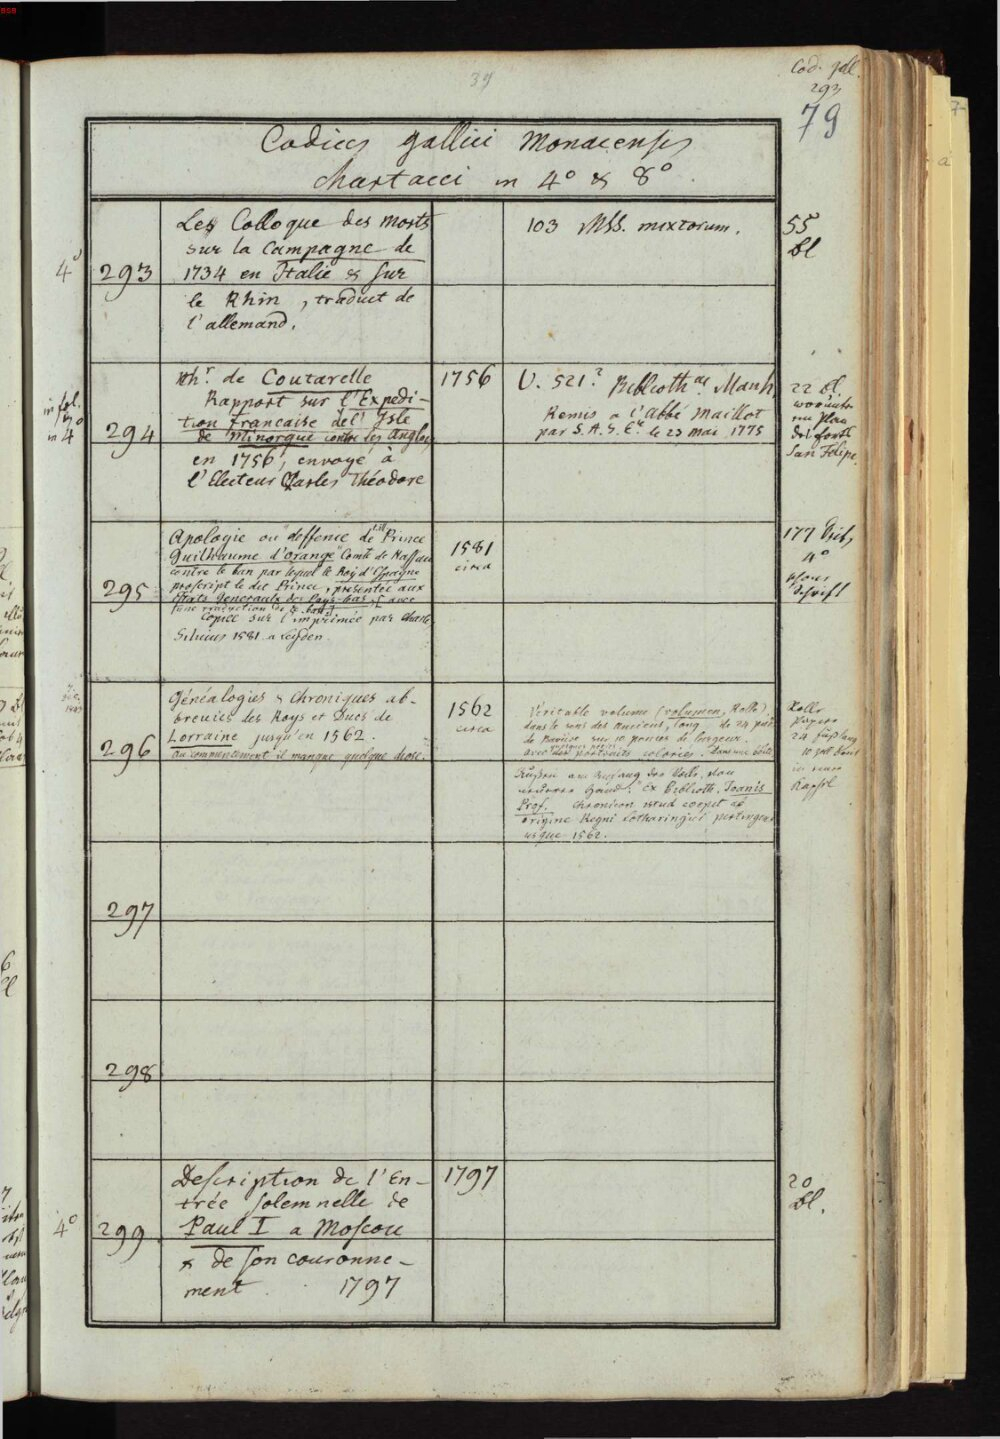 39
Cod. gall.
293
79
Codices gallici Monacenses
chartacei in 4° & 8°
Les Colloque des morts
sur la Campagne de
1734 en Italie & sur
le Rhin, traduit de
l'allemand.
4°
293
103 Mss. mixtorum.
55
Bl
de Coutarelle
Rapport sur l'Expedi-
tion francaise de l'Isle
de Minorque contre les Anglois
en 1756, envoyé à
l'Electeur Charles Théodore
in fol.
in 4°
294
1756
V. 521.? Biblioth.ae Manh.
Remis a l'Abbé Maillot
par S. A. S. E.le le 23 mai 1775
22 Bl.
worunter
ein Plan
des forts
San Felipe.
Apologie ou deffense de Prince
Guilhaume d'Orange Comte de Nassau
contre le ban par lequel le Roy d'Espagne
proscript le dit Prince, presentée aux
Etats Generaulx des Pays-bas, [avec
une traduction de ban]
Copié sur l'imprimée par Charle
Silvius 1581 a Leyden.
295
1581
circa
177 Bl.
4°
Schrift
Généalogies & Chroniques ab-
breviés des Roys et Ducs de
Lorraine jusqu'en 1562.
au commencement il manque quelque chose.
296
1562
circa
Véritable volume (volumen, Rolle)
dans le sens des Anciens, long de 24 pieds
de Baviere sur 10 pouces de largeur
avec des portraits coloriés.
Ex Biblioth. Joanis
Prof. Chronicon istud coepit ab
origine Regni Lotharingici pertingens
usque 1562.
Rolle
Papier
24 Fuß lang
10 Zoll breit
in neuer
Kapsel
297
298
Description de l'En-
trée solemnelle de
Paul I a Moscou
& de son couronne-
ment 1797
4°
299
1797
20
Bl.